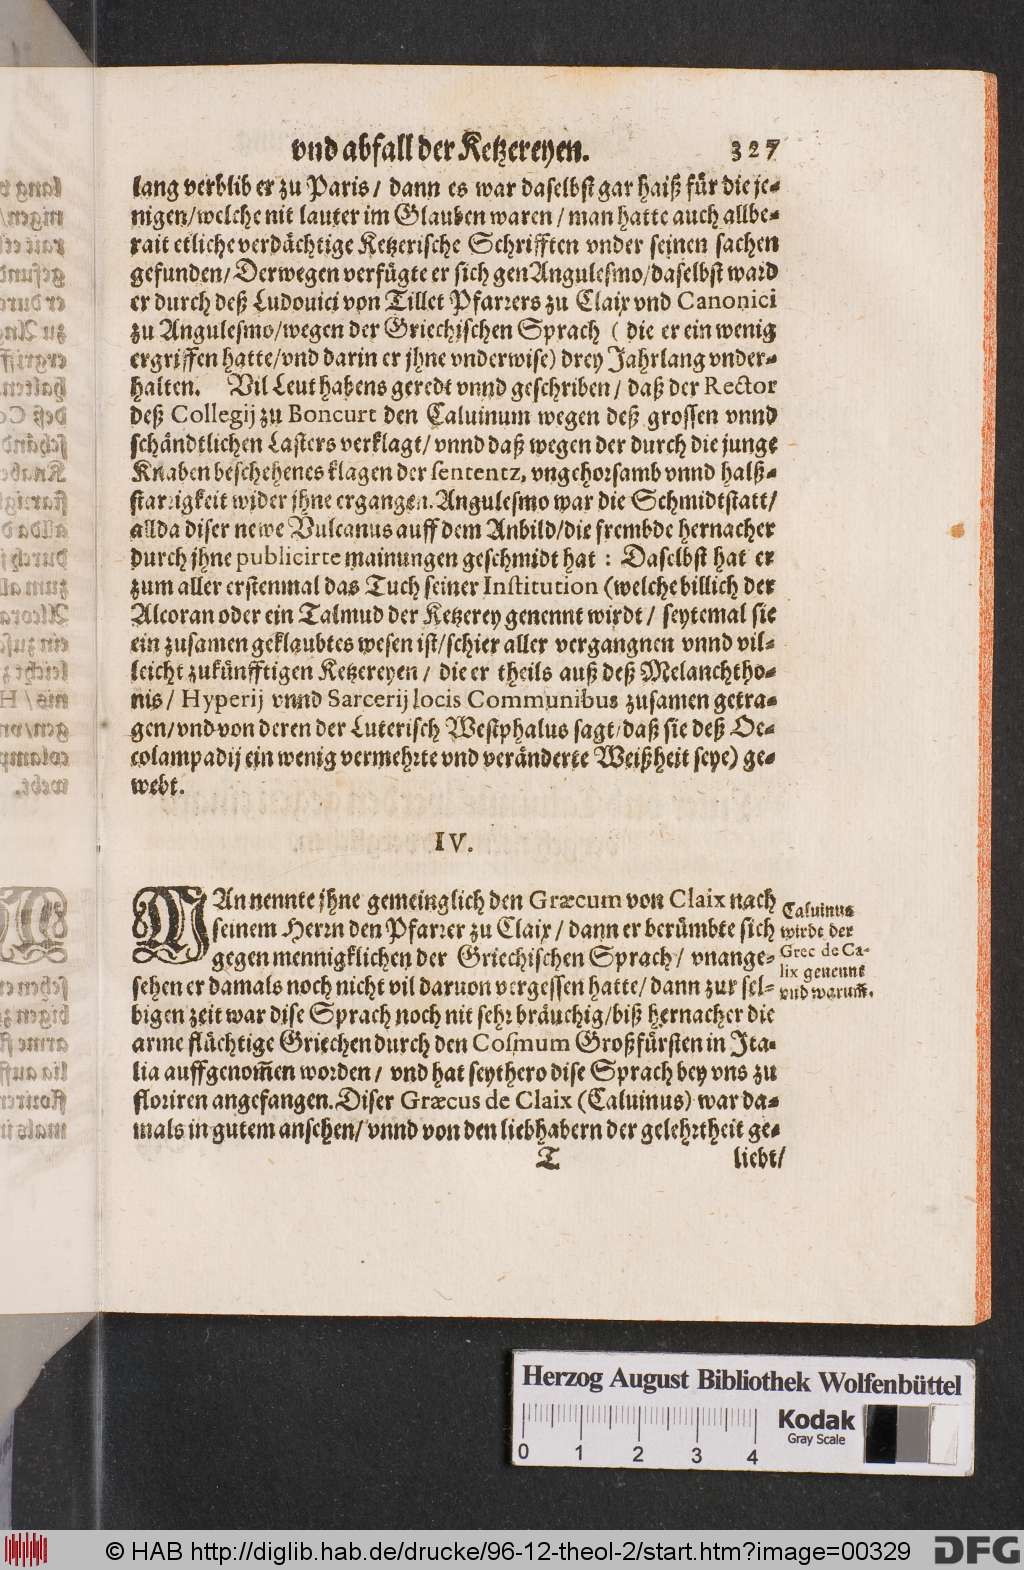 vnd abfall der Ketzereyen. 327
lang verblib er zu Paris/ dann es war daselbst gar haiß für die je-
nigen/welche nit lauter im Glauben waren/ man hatte auch allbe-
rait etliche verdächtige Ketzerische Schrifften vnder seinen sachen
gefunden/ Derwegen verfügte er sich gen Angulesmo/daselbst ward
er durch deß Ludouici von Tillet Pfarrers zu Claix vnd Canonici
zu Angulesmo/wegen der Griechischen Sprach ( die er ein wenig
ergriffen hatte/vnd darin er jhne vnderwise) drey Jahr lang vnder-
halten. Vil Leut habens geredt vnnd geschriben/ daß der Rector
deß Collegij zu Boncurt den Caluinum wegen deß grossen vnnd
schändtlichen Lasters verklagt/ vnnd daß wegen der durch die junge
Knaben beschehenes klagen der sententz, vngehorsamb vnnd halß-
starrigkeit wider jhne ergangen. Angulesmo war die Schmidtstatt/
allda diser newe Vulcanus auff dem Anbild/die frembde hernacher
durch jhne publicirte mainungen geschmidt hat : Daselbst hat er
zum aller erstenmal das Tuch seiner Institution (welche billich der
Alcoran oder ein Talmud der Ketzerey genennt wirdt/ seytemal sie
ein zusamen geklaubtes wesen ist/schier aller vergangnen vnnd vil-
leicht zukünfftigen Ketzereyen/ die er theils auß deß Melanchtho-
nis/ Hyperij vnnd Sarcerij locis Communibus zusamen getra-
gen/vnd von deren der Luterisch Westphalus sagt/daß sie deß Oe-
colampadij ein wenig vermehrte vnd veränderte Weißheit seye) ge-
webt.
IV.
MAn nennte jhne gemeinglich den Græcum von Claix nach
seinem Herrn den Pfarrer zu Claix/ dann er berümbte sich
gegen mennigklichen der Griechischen Sprach/ vnange-
sehen er damals noch nicht vil daruon vergessen hatte/ dann zur sel-
bigen zeit war dise Sprach noch nit sehr bräuchig/biß hernacher die
arme flüchtige Griechen durch den Cosmum Großfürsten in Ita-
lia auffgenom̃en worden/ vnd hat seythero dise Sprach bey vns zu
floriren angefangen. Diser Græcus de Claix (Caluinus) war da-
mals in gutem ansehen/ vnnd von den liebhabern der gelehrtheit ge-
T liebt/
Caluinus
wirdt der
Grec de Ca-
lix genennt
vnd warum̃.
Herzog August Bibliothek Wolfenbüttel
0 1 2 3 4
Kodak
Gray Scale
© HAB http://diglib.hab.de/drucke/96-12-theol-2/start.htm?image=00329
DFG